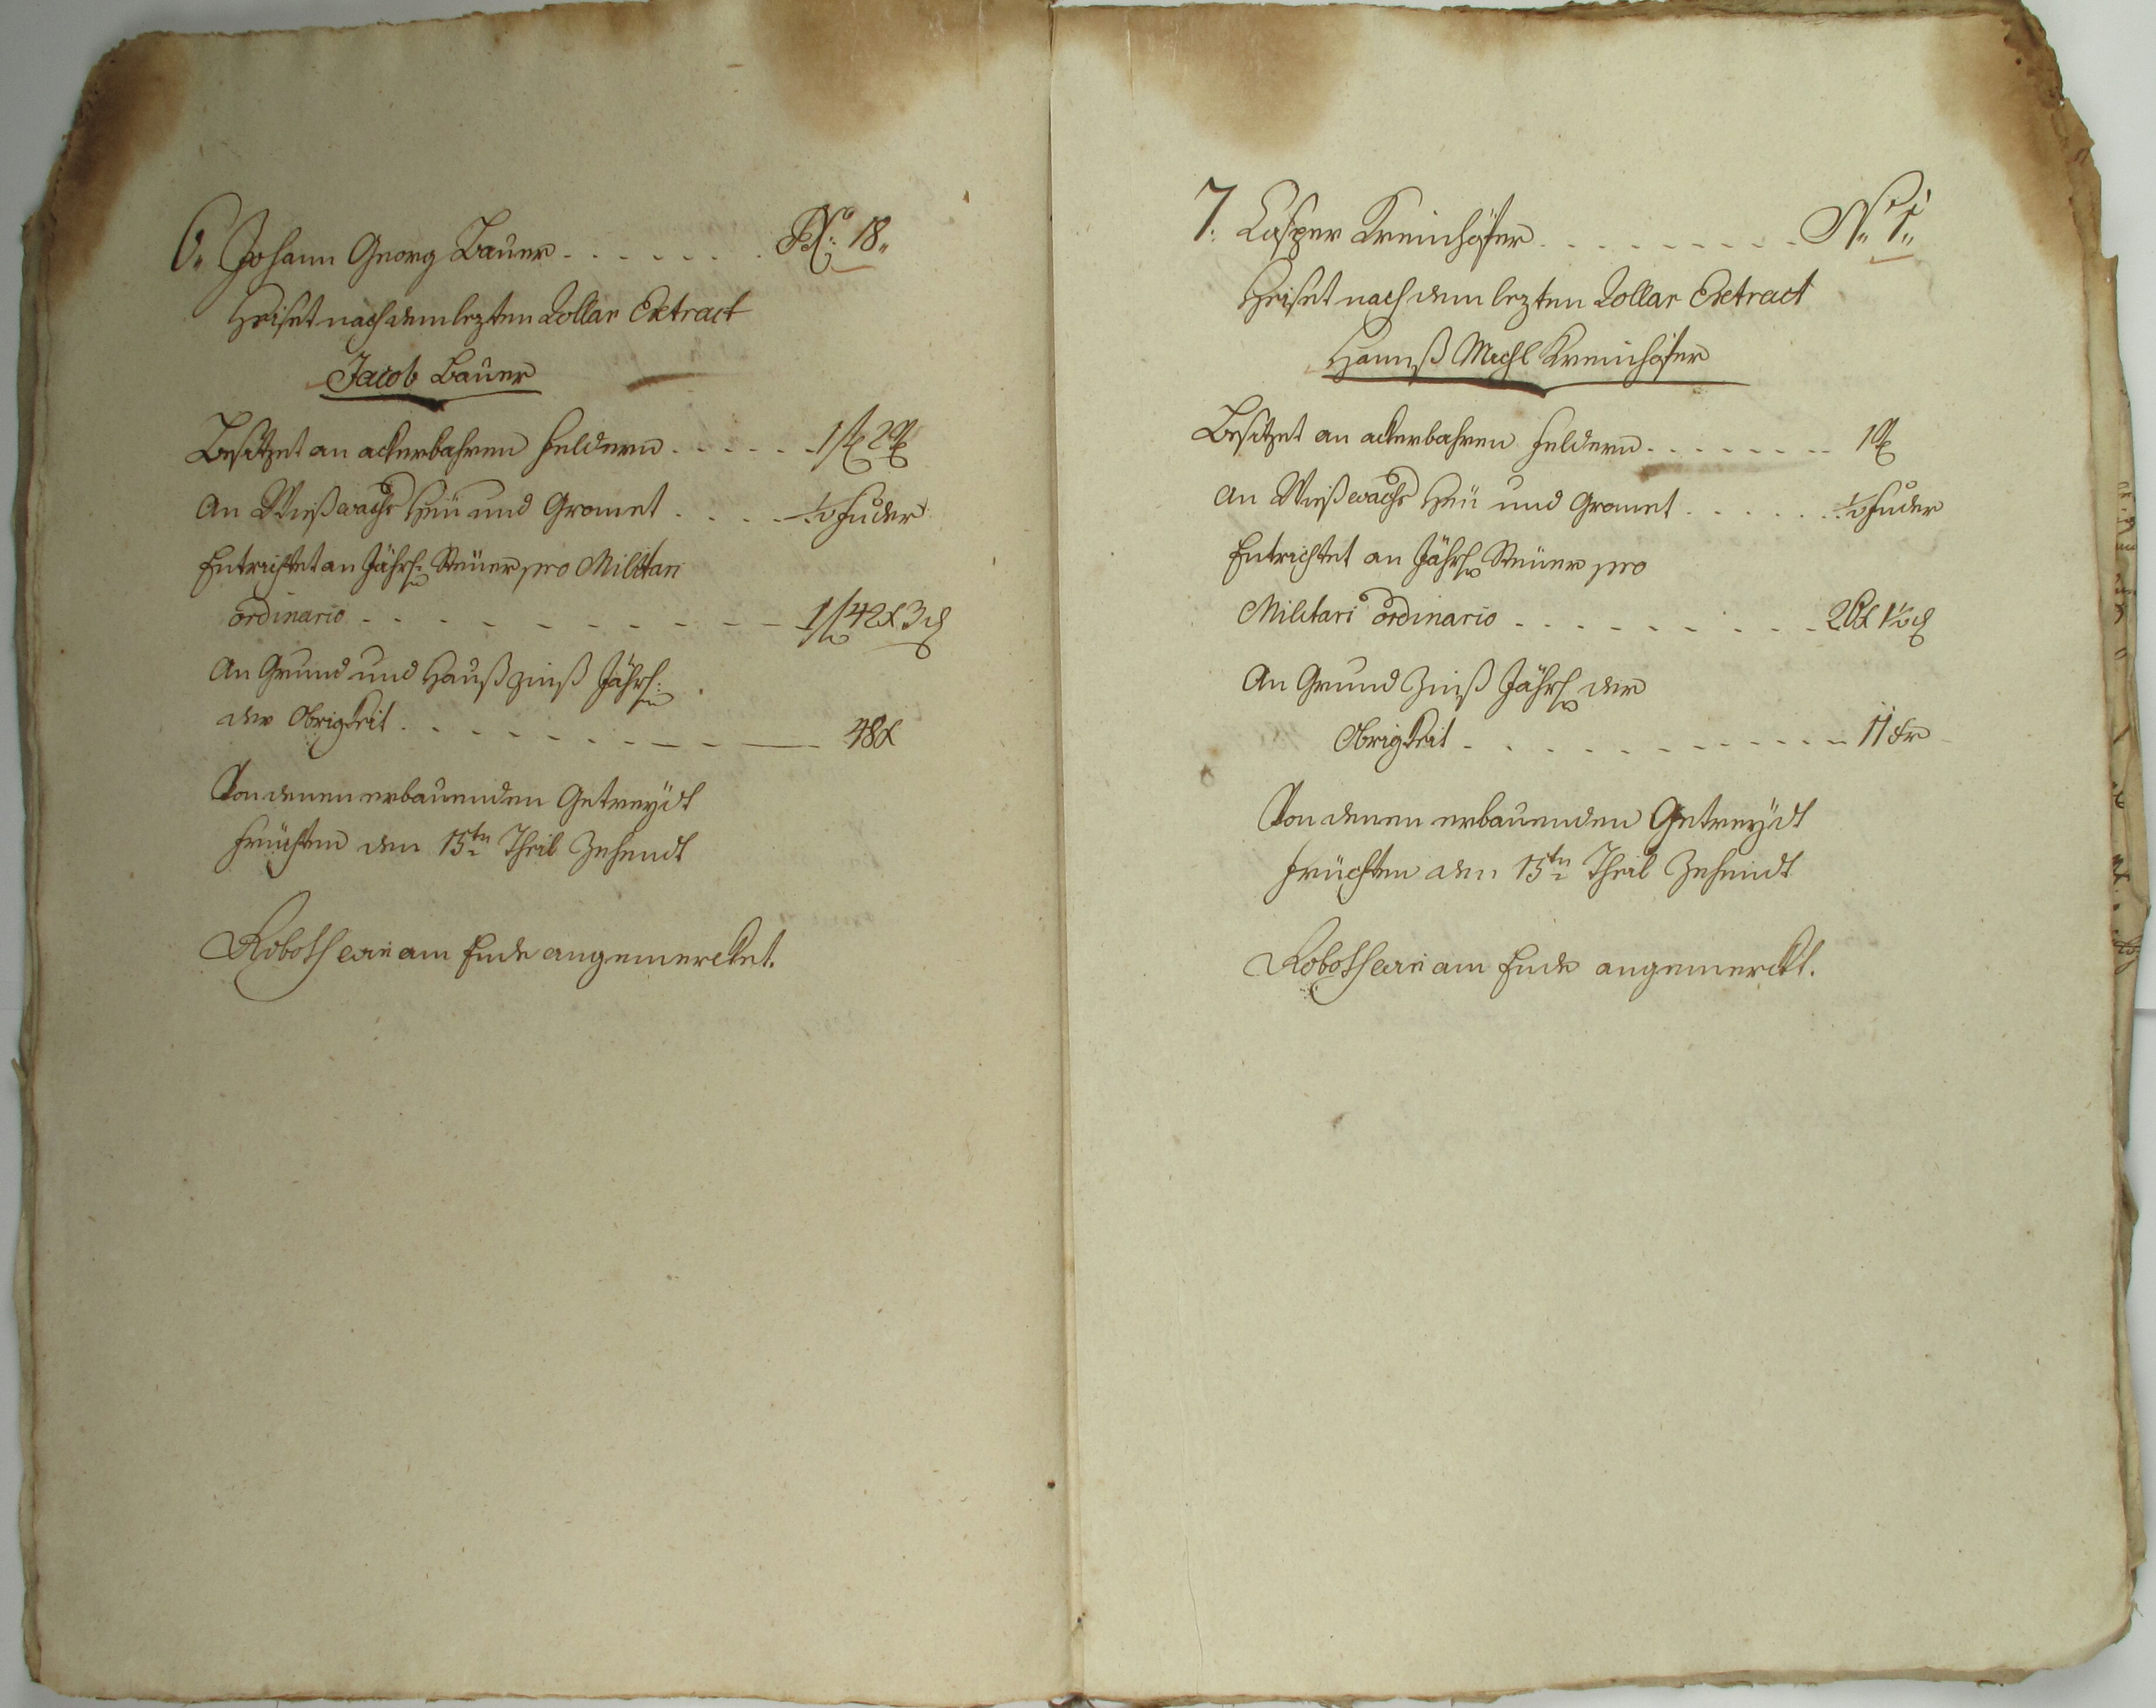 6. Johann Georg Bauer . . . . . . . N: 18.
Heiset nach dem lezten Zollar Extract
Jacob Bauer
Besitzet an ackerbahren Feldern . . . . .
An Wießwachs Heü und Gromet . . . . ½ Fuder
Entrichtet an Jährl: Steüer pro Militari
ordinario - - - - - - - - - - 1 f 42 x 3 d
An Grund und Haußzinß Jährl:
der Obrigkeit . - - - - - - - - - 48 x
Von denen erbauenden Getreÿdt
früchten den 15tn Theil Zehendt
Roboth wie am Ende angemercket.
7. Casper Kreinhöfer . . . . . . . N: 1.
Heiset nach dem lezten Zollar Extract
Hannß Michl Kreinhöfer
Besitzet an ackerbahren Feldern . . . . . . .
An Wießwachs Heü und Gromet . . . . . . ½ Fuder
Entrichtet an Jährl Steüer pro
Militari ordinario - - - - - - - - -
An Grund Zinß Jährl der
Obrigkeit - - - - - - - - - - - 11 kr
Von denen erbauenden Getreÿdt
früchten den 15tn Theil Zehendt
Roboth wie am Ende angemerckt.